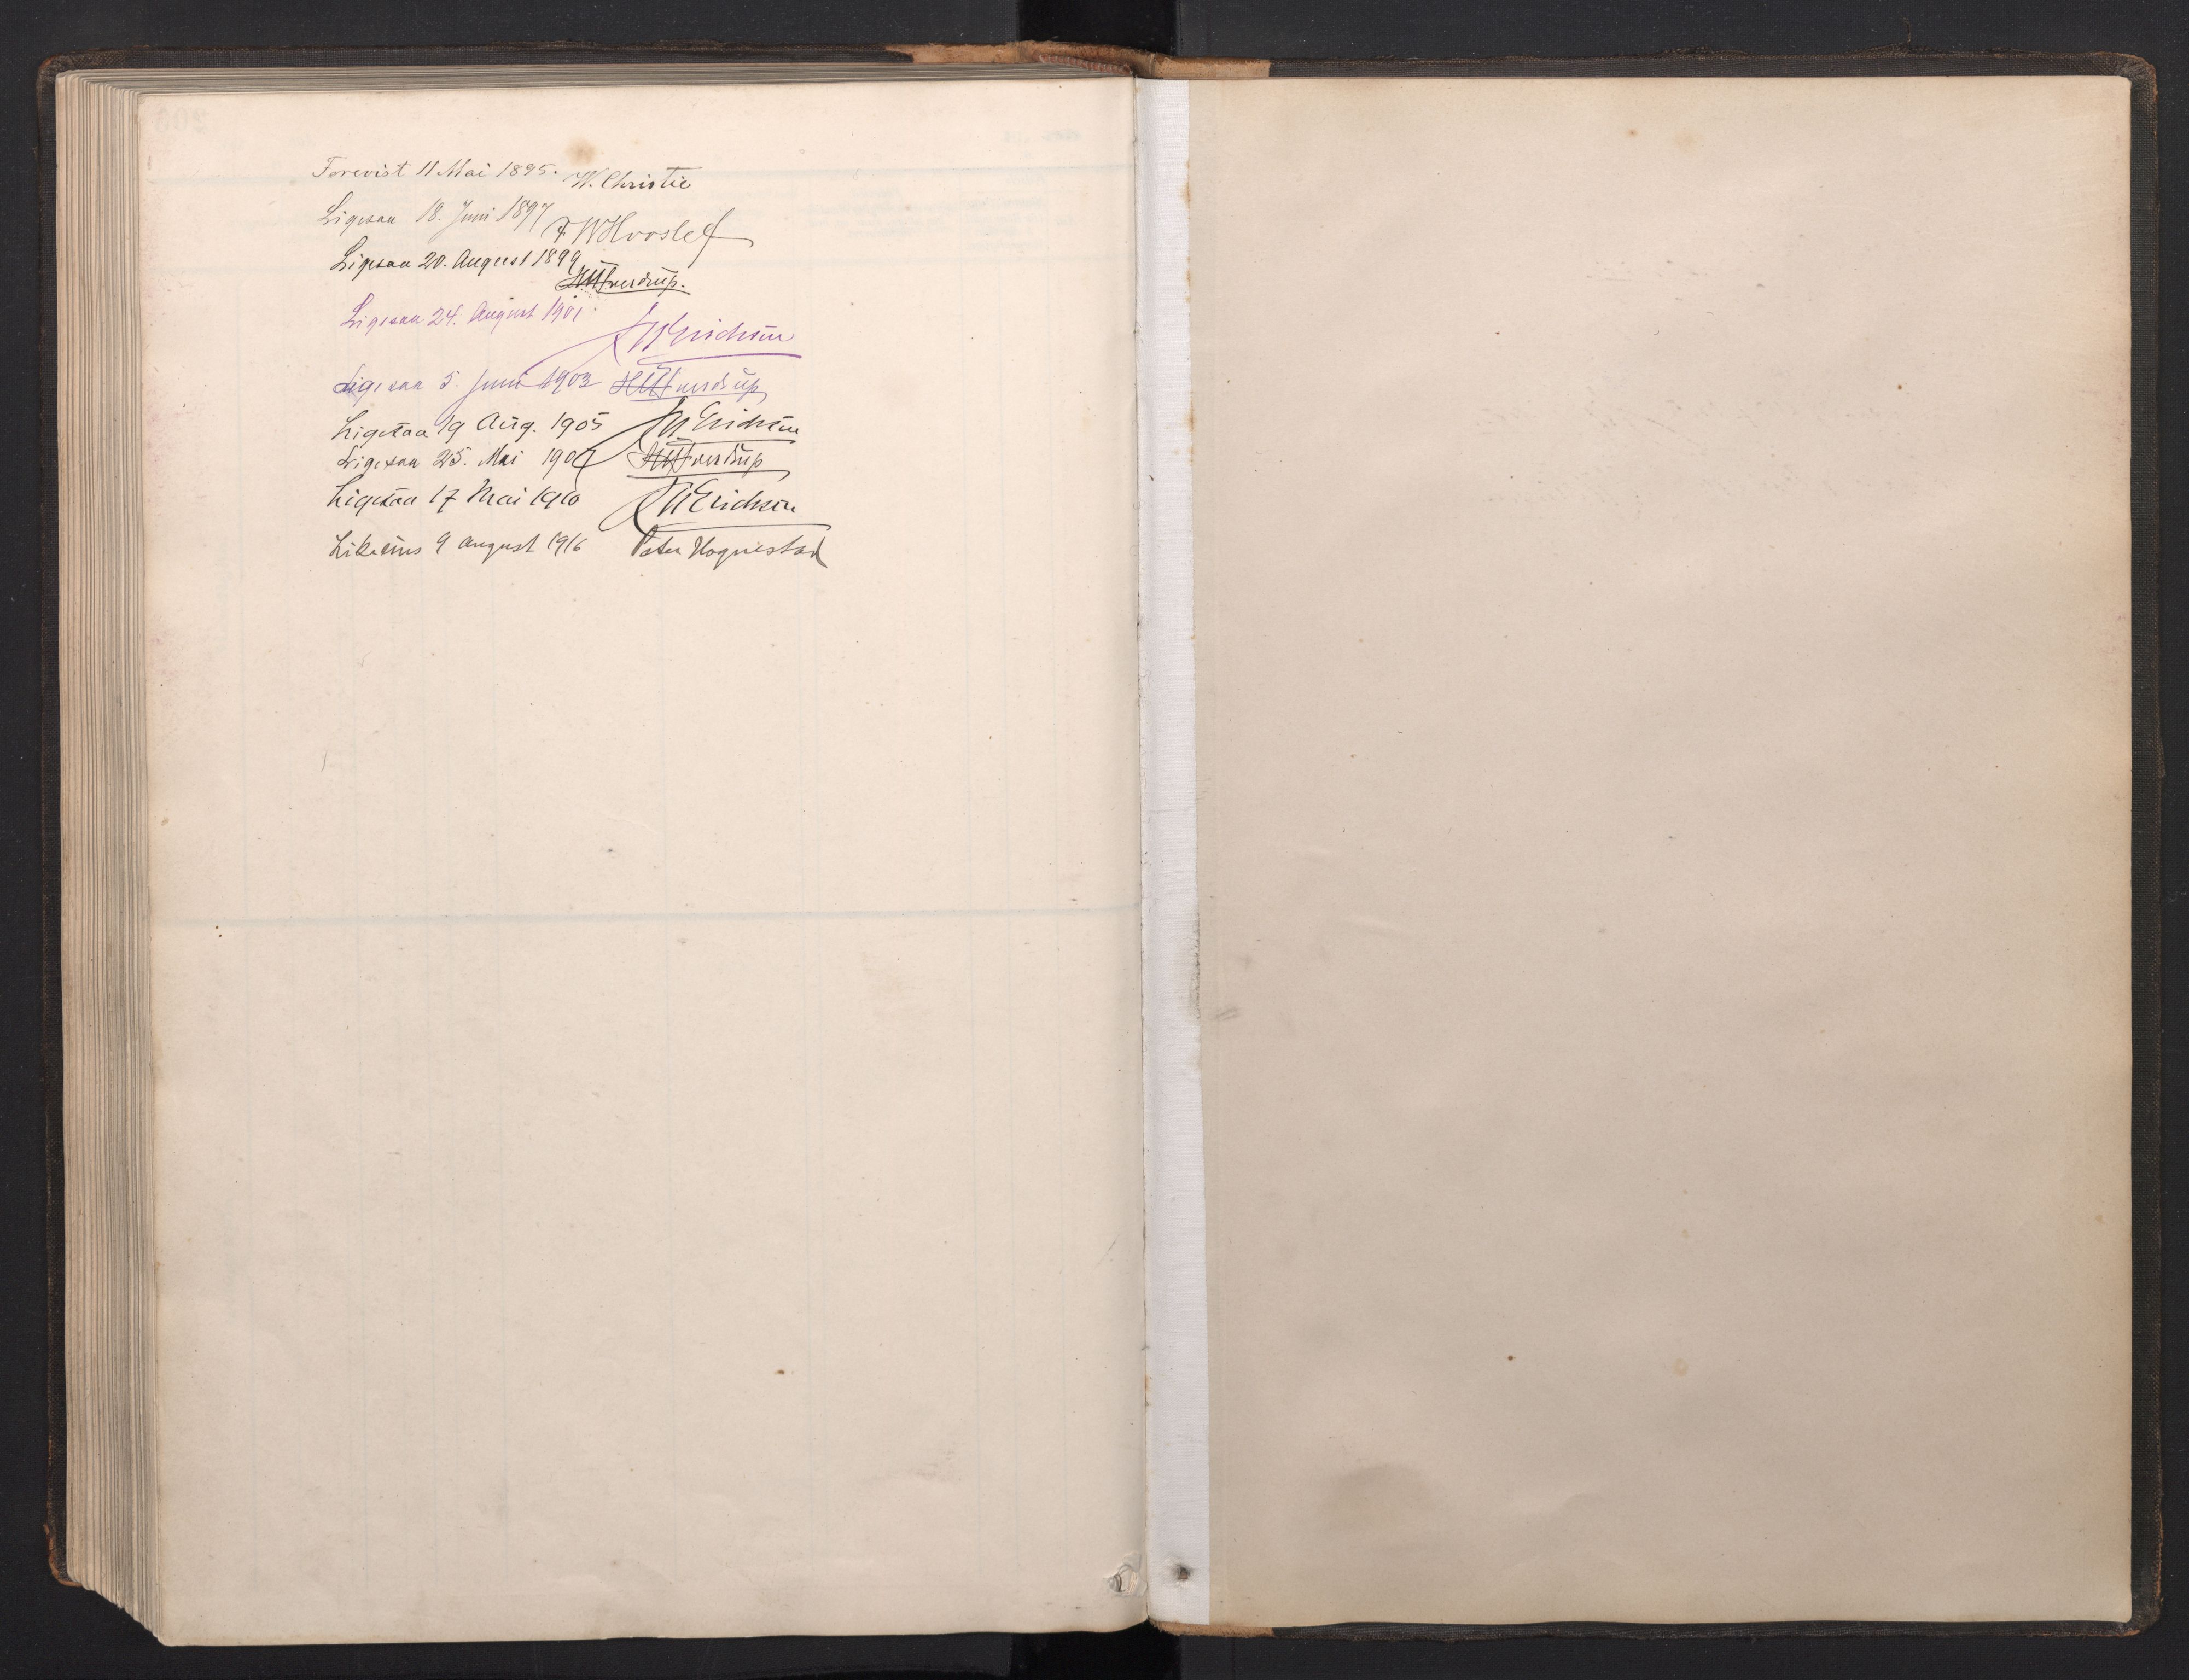 Forevist 11 Mai 1895. W. Christie
Ligesaa 18. Juni 1897 F W Hvoslef
Ligesaa 20. August 1899 Sverdrup.
Ligesaa 24. August 1901. Erichsen
Ligesaa 5. Juni 1903 Sverdrup
Ligesaa 19 Aug. 1905 Erichsen
Ligesaa 25. Mai Sverdrup
Ligesaa 17 Mai 1910 Erichsen
Likeeins 9 august 1916 Peter Hognestad